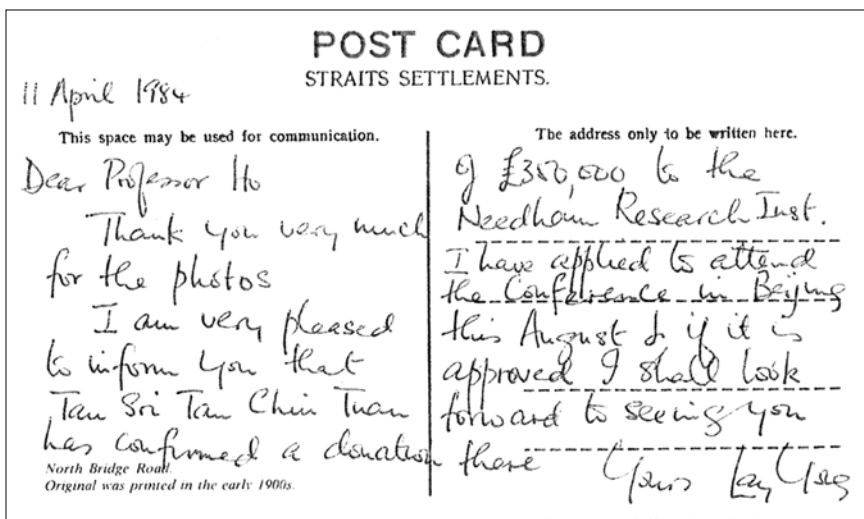 POST CARD
STRAITS SETTLEMENTS.
11 April 1984
This space may be used for communication.
Dear Professor Ho
Thank you very much
for the photos
I am very pleased
to inform you that
Tan Sri Tan Chin Tuan
has confirmed a donation
North Bridge Road.
Original was printed in the early 1900s.
The address only to be written here.
of £350,000 to the
Needham Research Inst.
I have applied to attend
the Conference in Beijing
this August & if it is
approved I shall look
forward to seeing you
there Yours Lay Yong